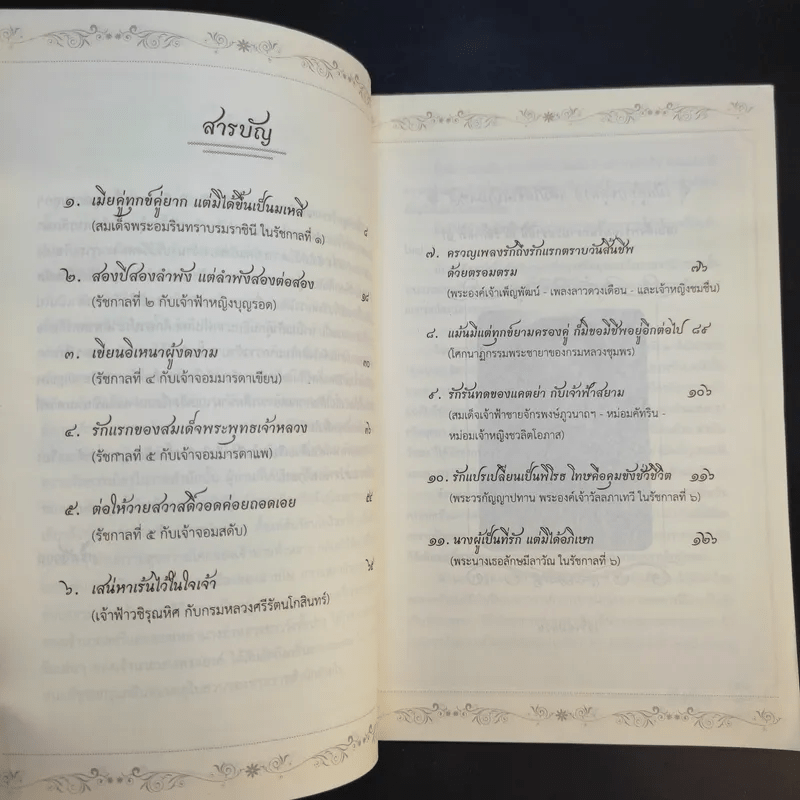 สารบัญ
๑. เมียคู่ทุกข์คู่ยาก แต่มิได้ขึ้นเป็นมเหสี
(สมเด็จพระอมรินทราบรมราชินี ในรัชกาลที่ ๑) ๘
๒. สองปีสองลำพัง แต่ลำพังสองต่อสอง
(รัชกาลที่ ๒ กับเจ้าฟ้าหญิงบุญรอด) ๑๙
๓. เขียนอิเหนาผู้งดงาม ๓๐
(รัชกาลที่ ๔ กับเจ้าจอมมารดาเขียน)
๔. รักแรกของสมเด็จพระพุทธเจ้าหลวง
(รัชกาลที่ ๕ กับเจ้าจอมมารดาแพ)
๕. ต่อให้วายสวาสดิ์วอดค่อยถอดเอย
(รัชกาลที่ ๕ กับเจ้าจอมสดับ)
๖. เสน่หาเร้นไว้ในใจเจ้า
(เจ้าฟ้าวชิรุณหิศ กับกรมหลวงศรีรัตนโกสินทร์)
๗. ครวญเพลงรักถึงรักแรกตราบวันสิ้นชีพ
ด้วยตรอมตรม ๗๖
(พระองค์เจ้าเพ็ญพัฒน์ - เพลงลาวดวงเดือน - และเจ้าหญิงชมชื่น)
๘. แม้นมีแต่ทุกข์ยามครองคู่ ก็มิขอมีชีพอยู่อีกต่อไป ๘๙
(โศกนาฏกรรมพระชายาของกรมหลวงชุมพร)
๙. รักรันทดของแคตย่า กับเจ้าฟ้าสยาม ๑๐๖
(สมเด็จเจ้าฟ้าชายจักรพงษ์ภูวนาถฯ - หม่อมคัทริน -
หม่อมเจ้าหญิงชวลิตโอภาส)
๑๐. รักแปรเปลี่ยนเป็นพิโรธ โทษคือคุมขังชั่วชีวิต ๑๑๖
(พระวรกัญญาปทาน พระองค์เจ้าวัลลภาเทวี ในรัชกาลที่ ๖)
๑๑. นางผู้เป็นที่รัก แต่มิได้อภิเษก ๑๒๖
(พระนางเธอลักษมีลาวัณ ในรัชกาลที่ ๖)